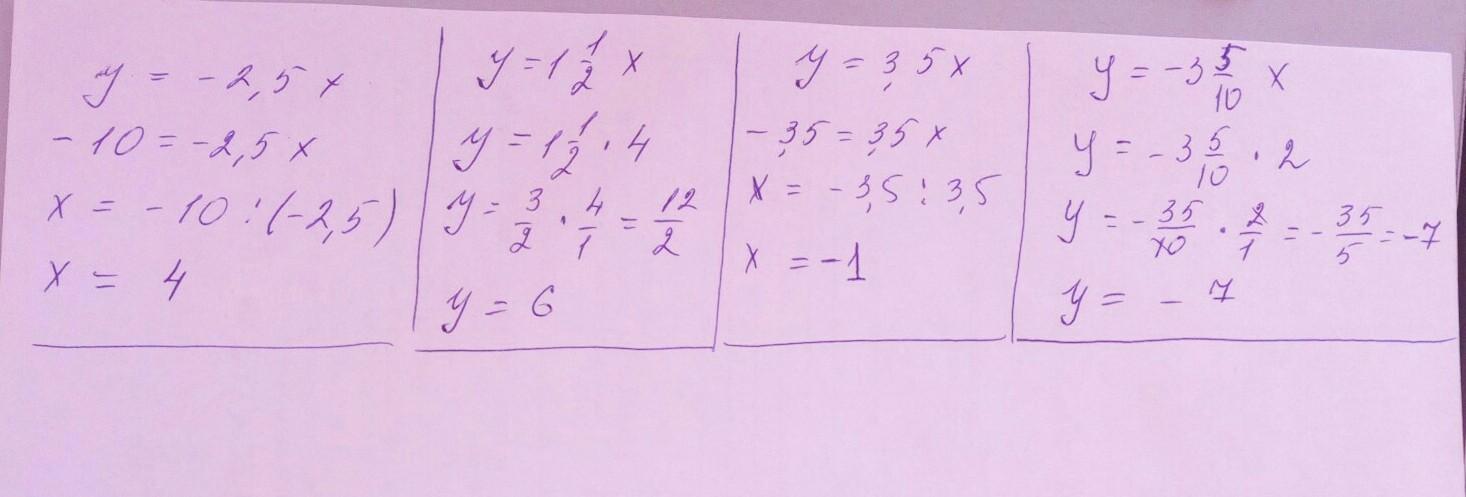 y = -2,5 x
-10 = -2,5 x
x = -10 : (-2,5)
x = 4
y = 1 1/2 x
y = 1 1/2 · 4
y = 3/2 · 4/1 = 12/2
y = 6
y = 3,5 x
-3,5 = 3,5 x
x = -3,5 : 3,5
x = -1
y = -3 5/10 x
y = -3 5/10 · 2
y = -35/10 · 2/1 = -35/5 = -7
y = -7